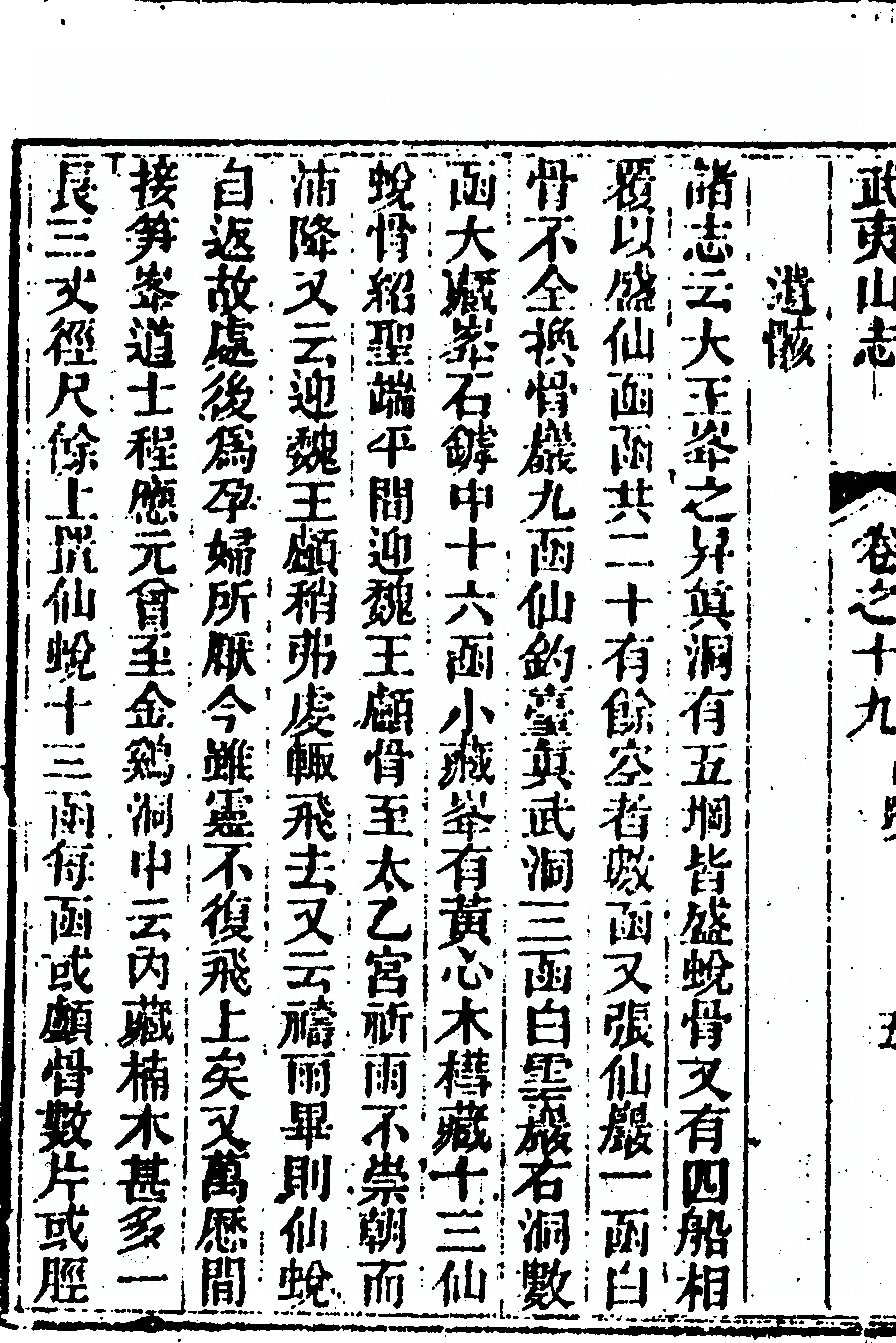 武夷山志 卷之十九 五
遺骸
諸志云大王峯之昇眞洞有五堈皆盛蛻骨又有四船相
覆以盛仙函函共二十有餘空者數函又張仙巖一函白
骨不全換骨巖九函仙釣臺眞武洞三函白雲巖石洞數
函大藏峯石罅中十六函小藏峯有黃心木櫘藏十三仙
蛻骨紹聖端平間迎魏王顱骨至太乙宮祈雨不崇朝而
沛降又云迎魏王顱稍弗虔輙飛去又云禱雨畢則仙蛻
自返故處後爲孕婦所厭今雖靈不復飛上矣又萬曆間
接笋峯道士程應元曾至金鷄洞中云內藏楠木甚多一
長三丈徑尺餘上置仙蛻十三函每函或顱骨數片或脛